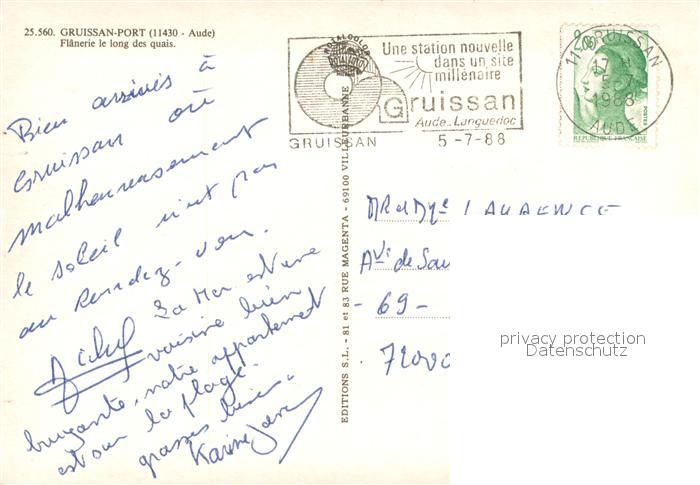 25.560. GRUISSAN-PORT (11430 - Aude)
Flânerie le long des quais.
Bien arrivés à
Gruissan où
malheureusement
le soleil n'est pas
au rendez-vous.
La Mer est une
voisine bien
bruyante, notre appartement
est sur la plage.
grosses bises.
Karine
EDITIONS S.L. - 81 et 83 RUE MAGENTA - 69100 VILLEURBANNE
ROTALCOLOR
Une station nouvelle
dans un site
millénaire
Gruissan
Aude_Languedoc
GRUISSAN 5-7-88
2,00
POSTES
REPUBLIQUE FRANÇAISE
11 GRUISSAN
17 H
5-7
1988
AUDE
LAURENCE
Av. de
- 69 -
72000
privacy protection
Datenschutz